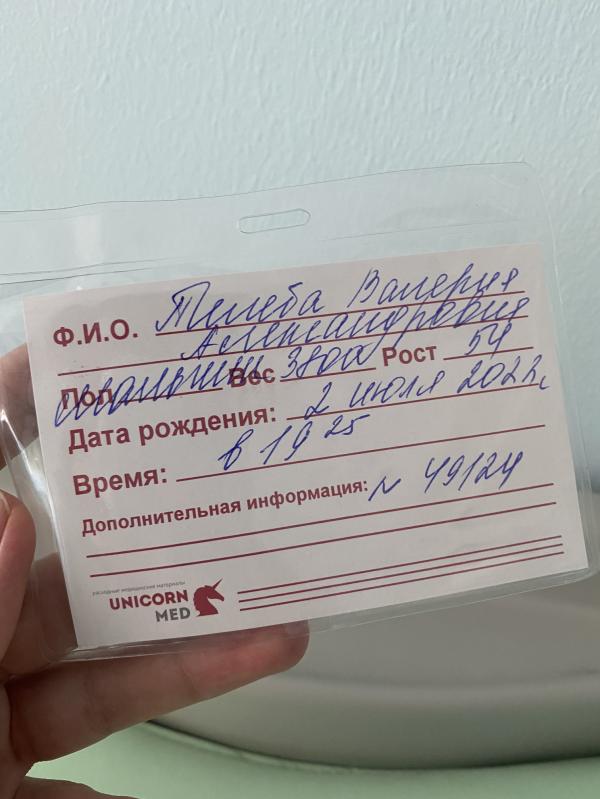 Ф.И.О. Тилеба Валерия
Александровна
Пол мальчик Вес 3800 Рост 54
Дата рождения: 2 июля 2022г.
Время: в 19 25
Дополнительная информация: N 49/24
расходные медицинские материалы
UNICORN
MED